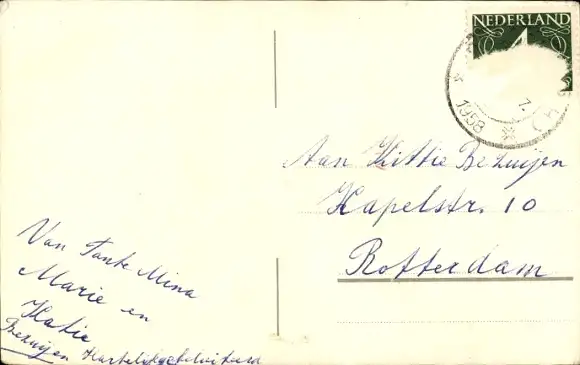 NEDERLAND
4
1958
7.
Aan Kittie Bezuijen
Kapelstr. 10
Rotterdam
Van Tante Mina
Marie en
Katie
Bezuijen Hartelijk gefeliciteerd